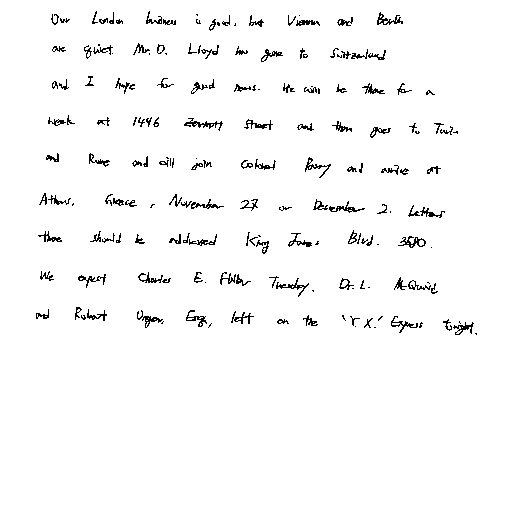 Our London business is good, but Vienna and Berlin
are quiet. Mr. D. Lloyd has gone to Switzerland
and I hope for good news. He will be there for a
week at 1446 Zermatt Street and then goes to Turin
and Rome and will join Colonel Parry and arrive at
Athens, Greece, November 27 or December 2. Letters
there should be addressed King James Blvd. 3580.
We expect Charles E. Fuller Tuesday. Dr. L. McQuaid
and Robert Unger, Esq., left on the 'Y.X.' Express tonight.